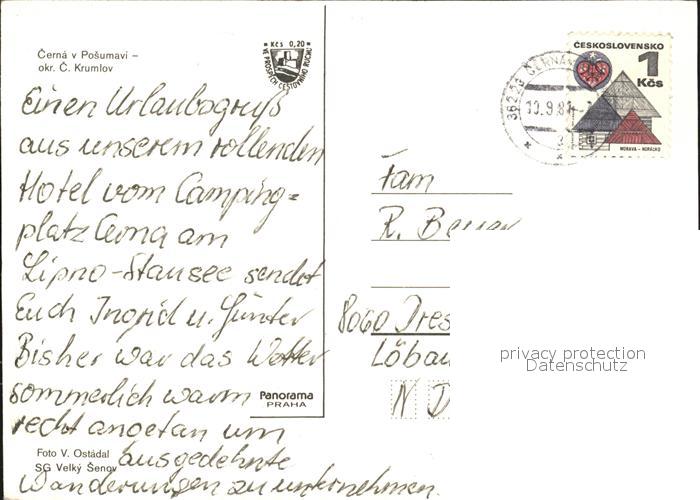 Černá v Pošumaví –
okr. Č. Krumlov
Kčs 0,20
VE PROSPĚCH CESTOVNÍHO RUCHU
Einen Urlaubsgruß
aus unserem rollenden
Hotel vom Camping=
platz Cerna am
Lipno-Stausee sendet
Euch Ingrid u. Günter
Bisher war das Wetter
sommerlich warm
recht angetan um
ausgedehnte
Wanderungen zu unternehmen.
Panorama
PRAHA
Foto V. Ostádal
SG Velký Šenov
ČESKOSLOVENSKO
1
Kčs
MORAVA - HORÁCKO
Fam
R.
8060 Dres
Löbau
N D
privacy protection
Datenschutz